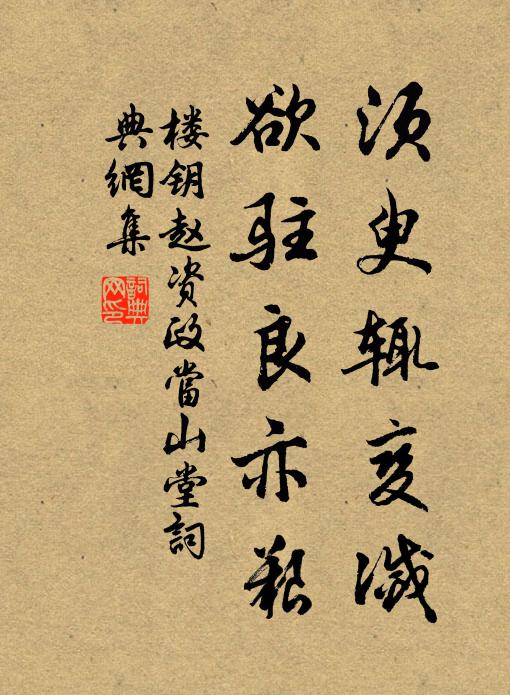 须臾辄变灭
欲驻良亦艰
楼钥赵资政当山堂詞
典網集
詞典网印